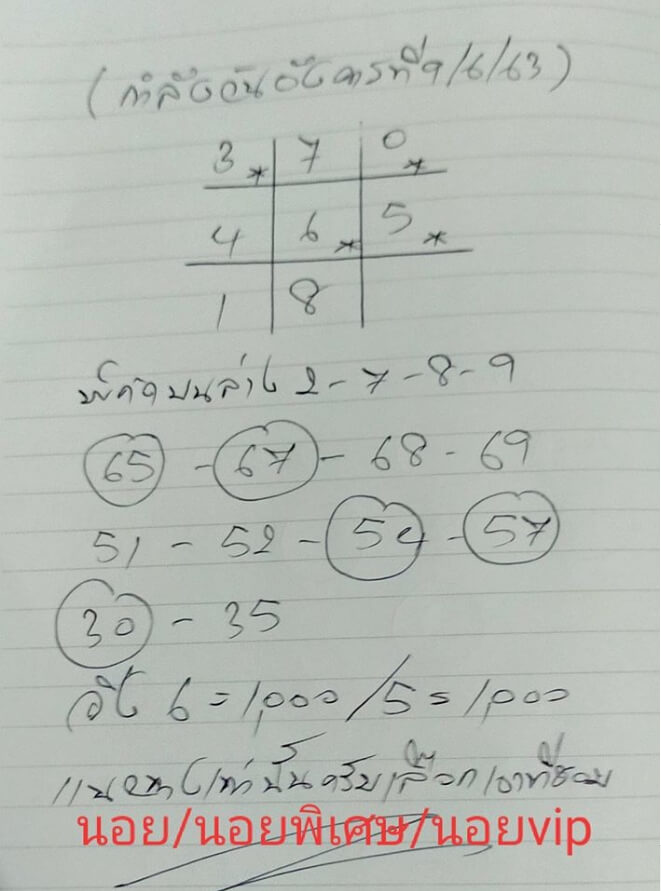 (กำลังวันอังคารที่ 9/6/63)
3* 7 0*
4 6* 5*
1 8
พิกัดบนล่าง 2-7-8-9
65 - 67 - 68 - 69
51 - 52 - 54 - 57
30 - 35
วิ่ง 6 = 1,000 / 5 = 1,000
แนวทางเท่านั้นครับเลือกเอาที่ชอบ
นอย/นอยพิเศษ/นอยvip